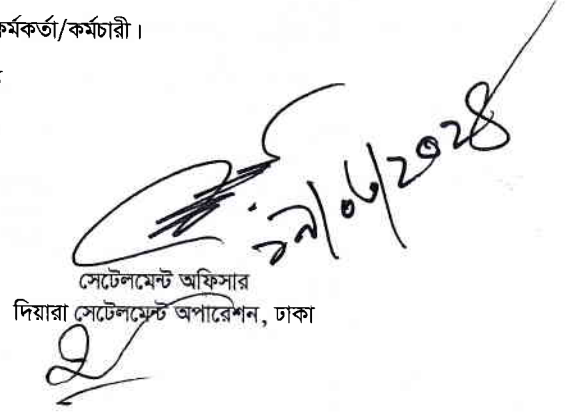 কর্মকর্তা/কর্মচারী।
সেটেলমেন্ট অফিসার
দিয়ারা সেটেলমেন্ট অপারেশন, ঢাকা